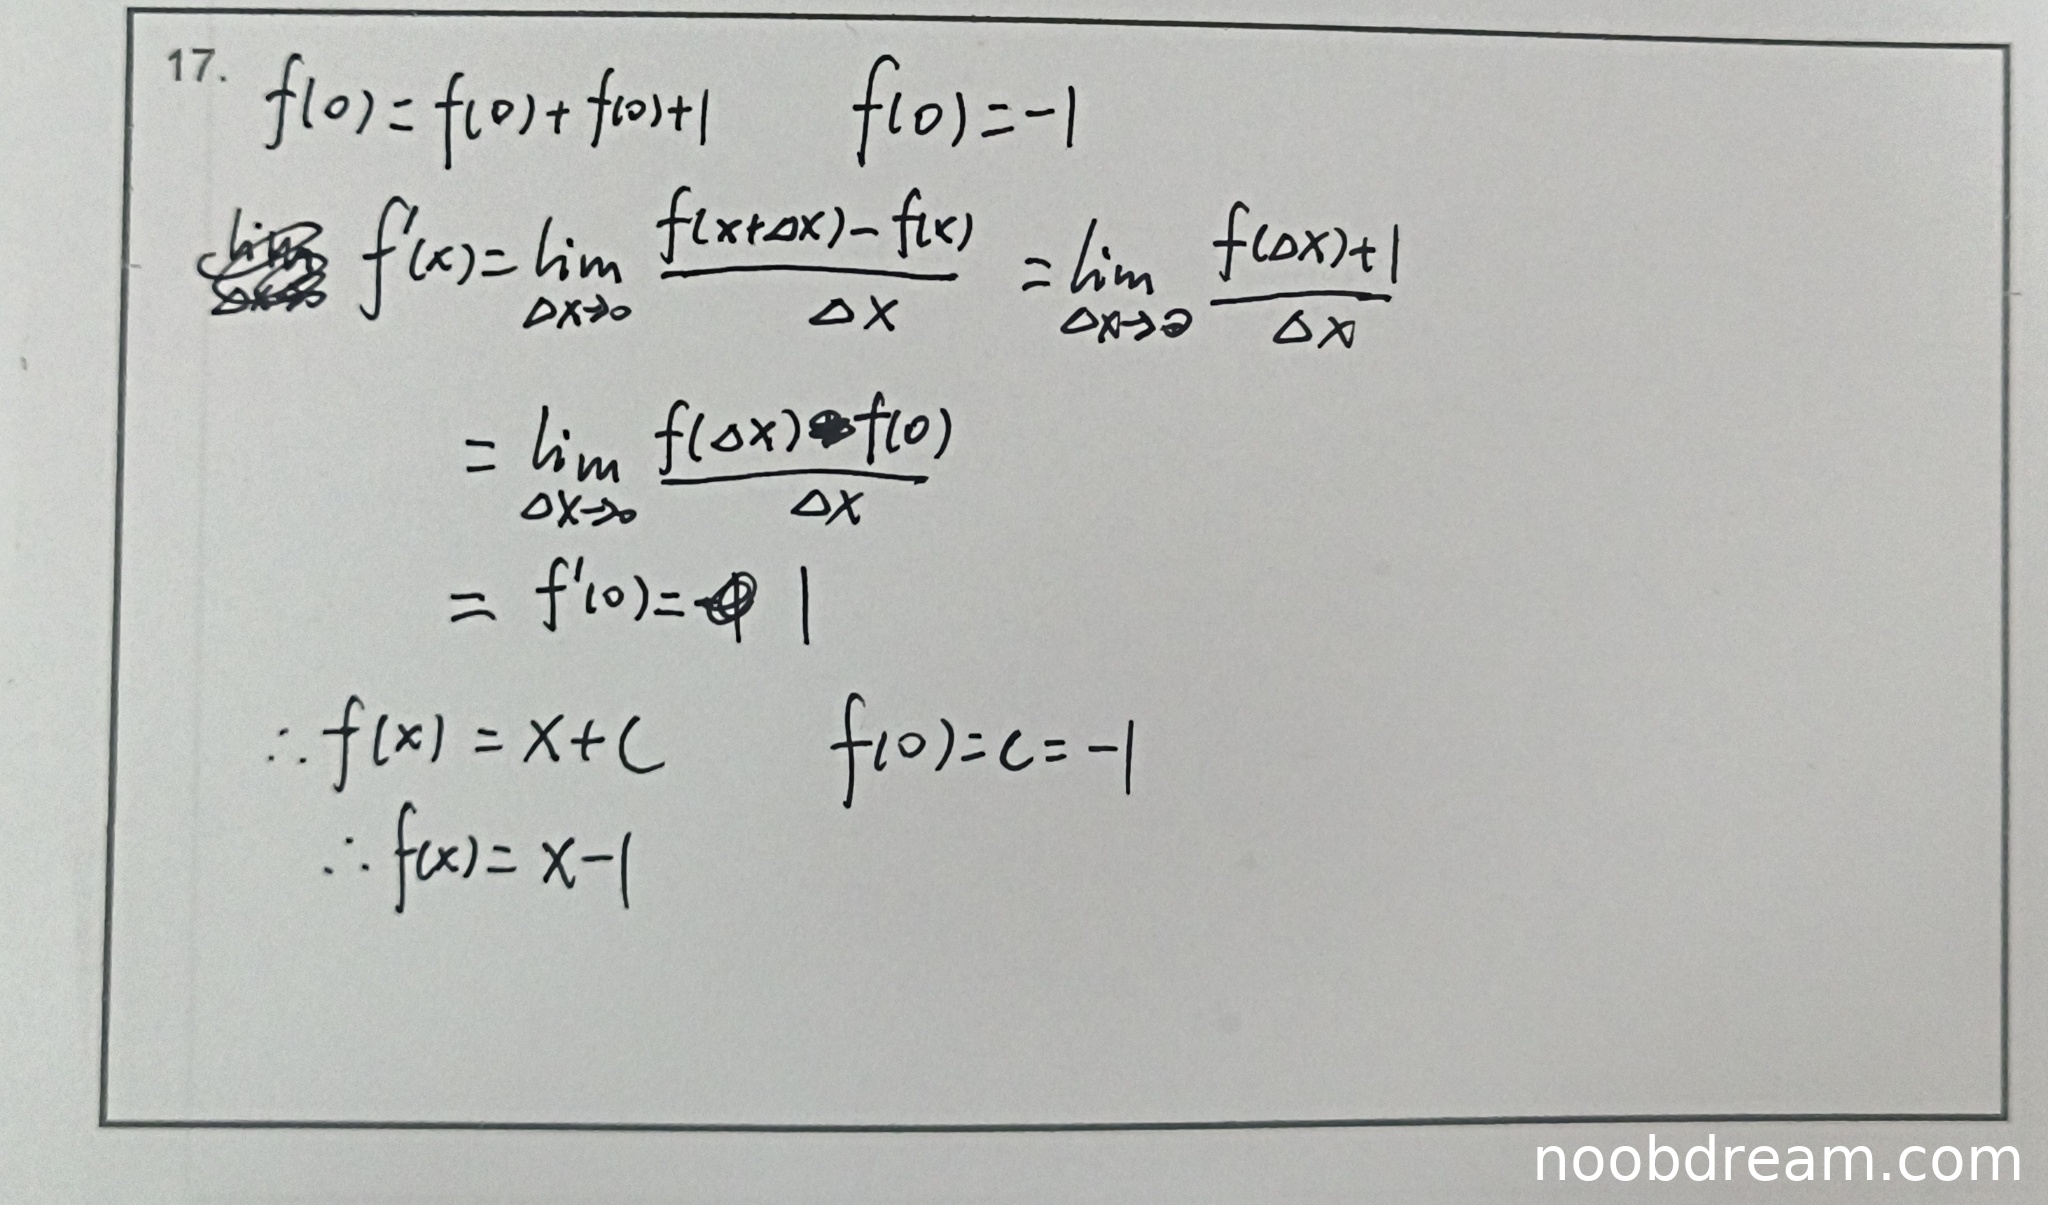 17. f(0)=f(0)+f(0)+1 f(0)=-1
f'(x)=lim Δx→0 (f(x+Δx)-f(x))/Δx =lim Δx→0 (f(Δx)+1)/Δx
= lim Δx→0 (f(Δx) f(0))/Δx
= f'(0)= 1
∴ f(x) = x+C f(0)=C=-1
∴ f(x)= x-1
noobdream.com